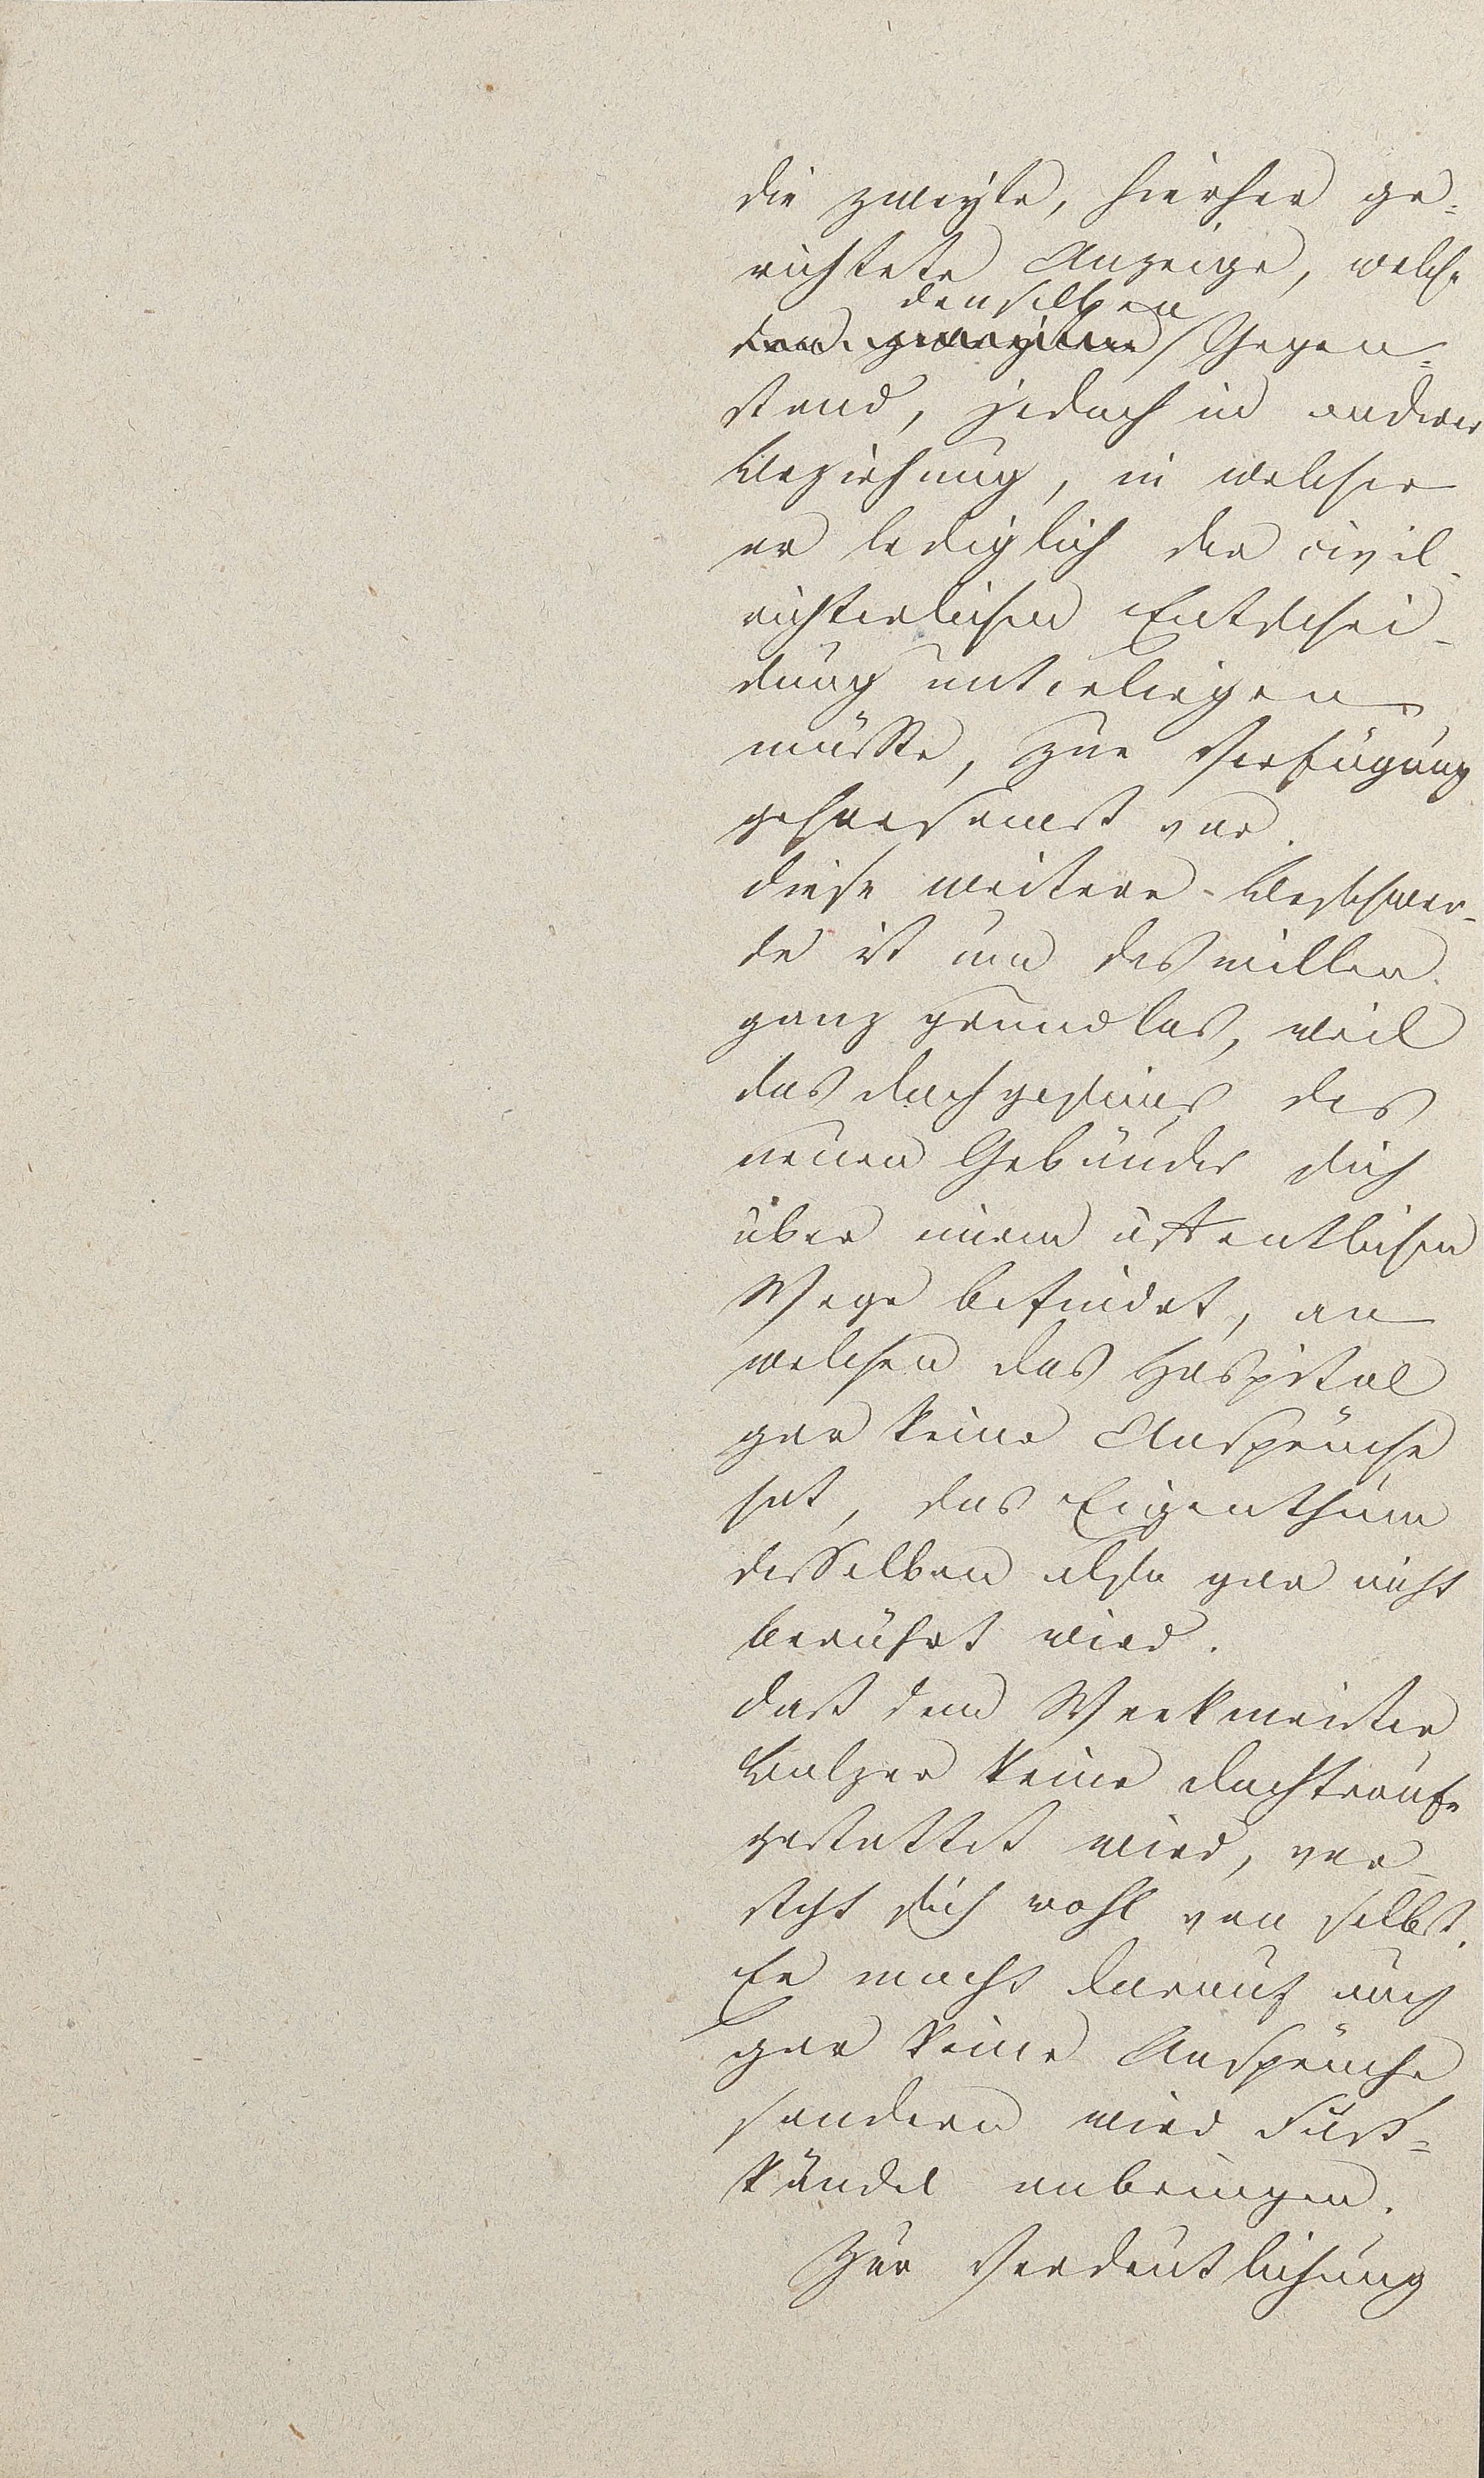 die zweyte, hierher ge=
richtete Anzeige, welche
denselben
den zweyten Gegen=
stand, jedoch in anderer
Beziehung, in welcher
er lediglich der civil-
richterlichen Entschei-
dung unterliegen
müsste, zur Verfügung
gehorsamst vor.
Diese weitere Beschwer-
de ist um deswillen
ganz grundlos, weil
das Dachgesims des
neuen Gebäudes sich
über einem öffentlichen
Wege befindet, an
welchen das Hospital
gar keine Ansprüche
hat, das Eigenthum
desselben also gar nicht
berührt wird.
Daß dem Werkmeister
Balzer keine Dachtraufe
gestattet wird, ver-
steht sich wohl von selbst.
Er macht darauf auch
gar keine Ansprüche
sondern wird
kändel anbringen.
Zur Verdeutlichung